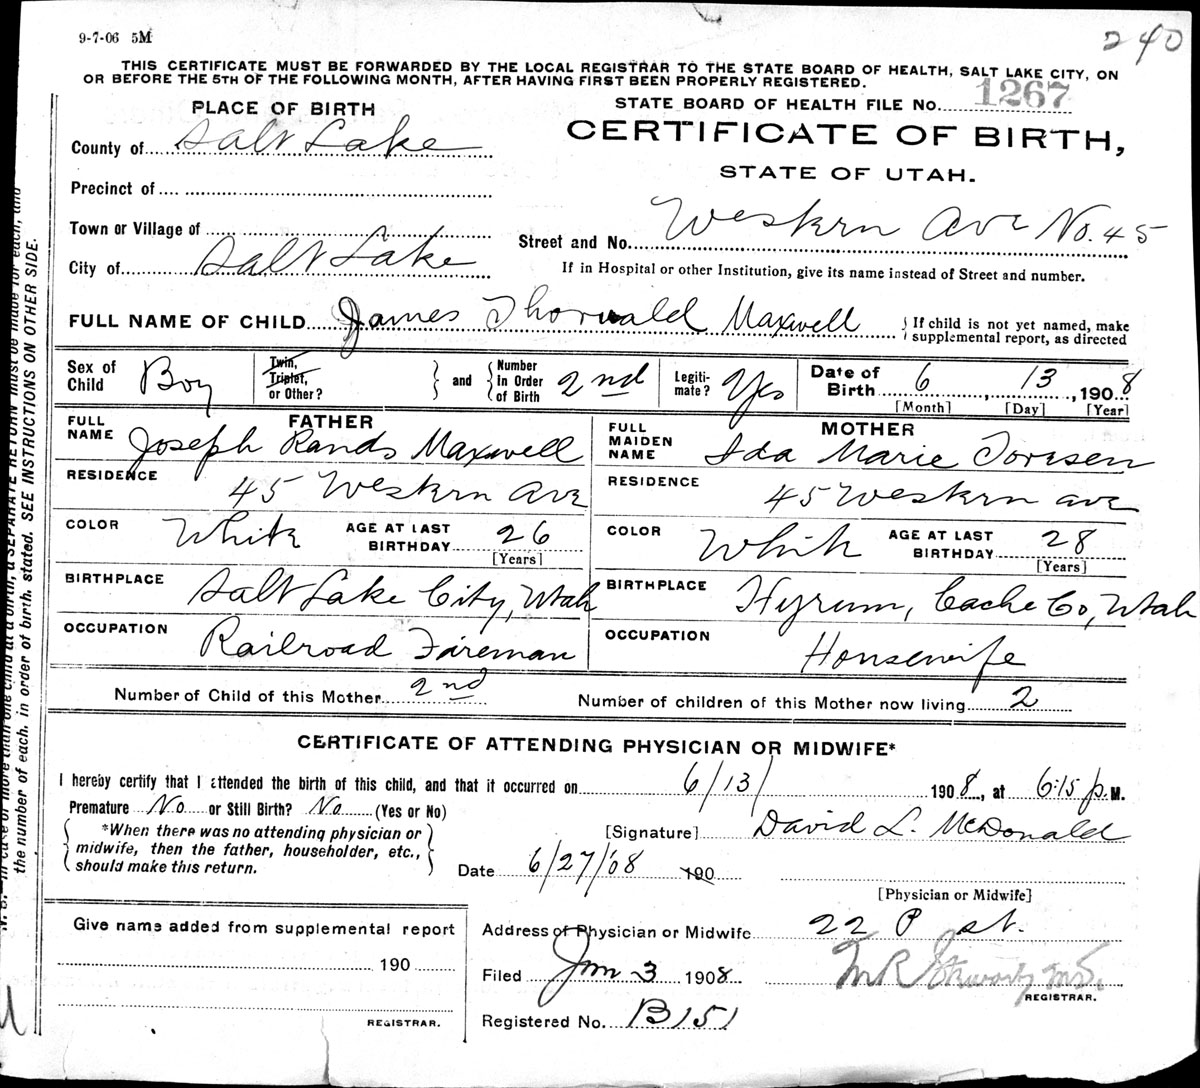 9-7-06 5M
240
THIS CERTIFICATE MUST BE FORWARDED BY THE LOCAL REGISTRAR TO THE STATE BOARD OF HEALTH, SALT LAKE CITY, ON
OR BEFORE THE 5TH OF THE FOLLOWING MONTH, AFTER HAVING FIRST BEEN PROPERLY REGISTERED.
PLACE OF BIRTH
STATE BOARD OF HEALTH FILE No. 1267
CERTIFICATE OF BIRTH,
STATE OF UTAH.
County of Salt Lake
Precinct of
Town or Village of
City of Salt Lake
Street and No. Western Ave No. 45
If in Hospital or other Institution, give its name instead of Street and number.
FULL NAME OF CHILD James Thorwald Maxwell
If child is not yet named, make
supplemental report, as directed
Sex of Child Boy
Twin, Triplet, or Other?
and Number in Order of Birth 2nd
Legiti-mate? Yes
Date of Birth 6, 13, 1908
[Month] [Day] [Year]
FATHER
FULL NAME Joseph Rands Maxwell
RESIDENCE 45 Western Ave
COLOR White AGE AT LAST BIRTHDAY 26 [Years]
BIRTHPLACE Salt Lake City, Utah
OCCUPATION Railroad Fireman
MOTHER
FULL MAIDEN NAME Ida Marie Toresen
RESIDENCE 45 Western Ave
COLOR White AGE AT LAST BIRTHDAY 28 [Years]
BIRTHPLACE Hyrum, Cache Co, Utah
OCCUPATION Housewife
Number of Child of this Mother 2nd
Number of children of this Mother now living 2
CERTIFICATE OF ATTENDING PHYSICIAN OR MIDWIFE*
I hereby certify that I attended the birth of this child, and that it occurred on 6/13/ 1908, at 6:15 p.M.
Premature No or Still Birth? No (Yes or No)
*When there was no attending physician or
midwife, then the father, householder, etc.,
should make this return.
[Signature] David L. McDonald
Date 6/27/08 190
[Physician or Midwife]
Give name added from supplemental report
190
REGISTRAR.
Address of Physician or Midwife 22 P st.
Filed Jm 3 1908
REGISTRAR.
Registered No. B151
the number of each, in order of birth, stated. SEE INSTRUCTIONS ON OTHER SIDE.